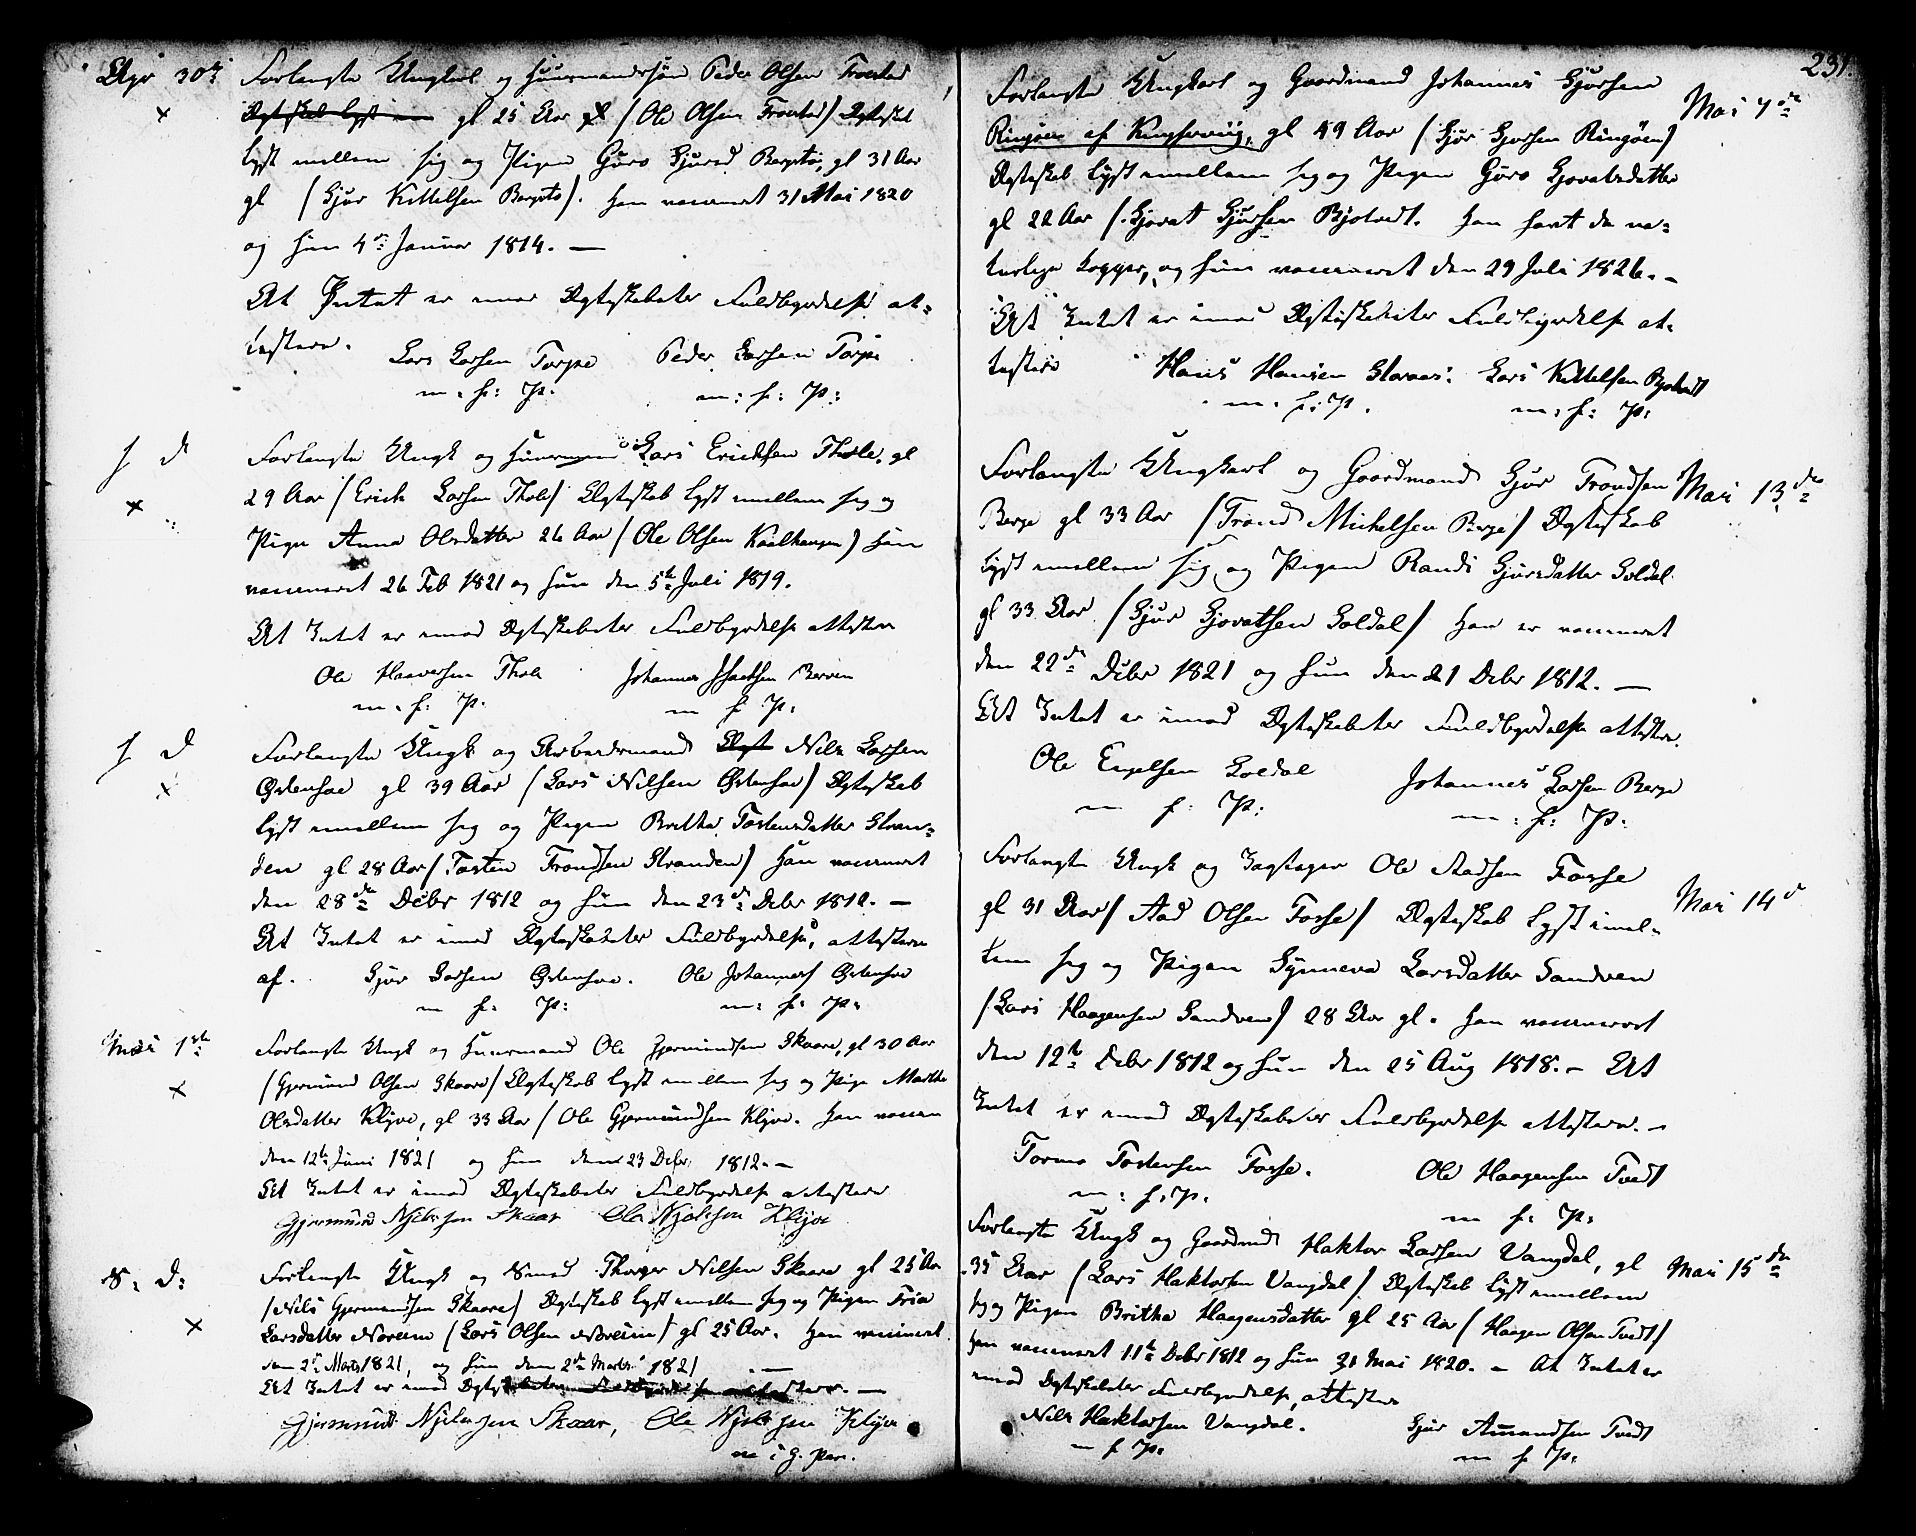 Apr 30te Forlangte Ungkarl og Huusmandssøn Peder Olsen Trostad
Ægteskab lyst im gl 25 Aar gl / Ole Olsen Trostad / Ægteskab
lyst mellem sig og Pigen Guro Sjursd gl 31 Aar
gl / Sjur Kittelsen . Han vaccineret 31 Mai 1820
og hun 4de Januar 1814. —
At Intet er imod Ægteskabets Fuldbyrdelse at=
testere.
Lars Larsen Torpe Peder Larsen Torpe
m: f: P: m: f: P:
s d Forlangte Ungk og Huusmand Lars Erichsen Thole, gl
29 Aar / Erich Larsen Thole / Ægteskab lyst mellem sig og
Pige Anna Olsdatter 26 Aar / Ole Olsen Kaalhaugen ) Han
vaccineret 26 Feb 1821 og hun den 5te Juli 1819.
At Intet er imod Ægteskabets Fuldbyrdelse attestere
Ole Haaversen Thole Johannes Isaksen Berven
m: f: P: m f P:
s d Forlangte Ungk og Arbeidsmand Ægt Nils Larsen
Østensøe gl 39 Aar / Lars Nilsen Østensøe / Ægteskab
lyst imellem sig og Pigen Britha Tostensdatter Stran=
den gl 28 Aar / Tosten Trondsen Stranden / Han vaccineret
den 28de Debr 1812 og hun den 23de Debr 1812. —
At Intet er imod Ægteskabets Fuldbyrdelse, attestere
af. Sjur Larsen Østensøe. Ole Johannes Østensøe
m f: P: m: f: P:
Mai 1ste Forlangte Ungk og Huusmand Ole Gjermundsen Skaare, gl 30 Aar
/ Gjermund Olsen Skaare / Ægteskab lyst mellem sig og Pige Martha
Olsdatter Klyve, gl 33 Aar / Ole Gjermundsen Klyve. Han vaccin
den 12te Juni 1821 og hun den 23 Debr 1812. —
At Intet er imod Ægteskabets Fuldbyrdelse attestere
Gjermund Njelsen Skaar Ole Njelsen Klyve
S: D: Forlangte Ungk og Smed Thorger Nilsen Skaare gl 25 Aar
/ Nils Gjermundsen Skaare / Ægteskab lyst mellem sig og Pigen
Larsdatter Noreim / Lars Olsen Noreim / gl 25 Aar. Han vaccineret
den 2de Marts 1821, og hun den 2de Marts 1821 —
At Intet er imod Ægteskabets Fuldbyrdelse attestere. —
Gjermund Njelsen Skaar, Ole Njelsen Klyve
m i g. pen.
231.
Forlangte Ungkarl og Gaardmand Johannes Sjursen Mai 7de
Ringøen af Kingservig, gl 49 Aar / Sjur Sjursen Ringøen /
Ægteskab lyst imellem sig og Pigen Guro Sjovatsdatter
gl 22 Aar / Sjovat Sjursen Bjotvedt. Han havt de na=
turlige kopper, og hun vaccineret den 29 Juli 1826. —
At Intet er imod Ægteskabets Fuldbyrdelse at=
testere Hans Hansen Lars Kittelsen Bjotvedt
m: f: P. m: f: P:
Forlangte Ungkarl og Gaardmand Sjur Trondsen Mai 13de
Berge gl 33 Aar / Trond Michelsen Berge / Ægteskab
lyst imellem sig og Pigen Randi Sjursdatter Soldal
gl 33 Aar / Sjur Sjovatsen Soldal / Han er vaccineret
den 22de Debr 1821 og hun den 21 Debr 1812. —
At Intet er imod Ægteskabets Fuldbyrdelse attestere.
Ole Engelsen Soldal Johannes Larsen Berge
m f: P: m: f: P:
Forlangte Ungk og Ole Aadsen Fosse Mai 14d
gl 31 Aar / Aad Olsen Fosse / Ægteskab lyst imel=
lem sig og Pigen Synneva Larsdatter Sandven
/ Lars Haagensen Sandven / 28 Aar gl. Han vaccineret
den 12te Debr 1812 og hun den 25 Aug 1818. — At
Intet er imod Ægteskabets Fuldbyrdelse attestere. —
Tormo Tostensen Fosse. Ole Haagensen Tvedt
m: f: P. m f: P:
Forlangte Ungk og Gaardmd Haktor Larsen Vangdal, gl Mai 15de
35 Aar / Lars Haktorsen Vangdal / Ægteskab lyst imellem
sig og Pigen Britha Haagensdatter gl 25 Aar / Haagen Olsen Tvedt /
Han vaccineret 11te Debr 1812 og hun 31 Mai 1820. — At Intet er
imod Ægteskabets Fuldbyrdelse, attestere
Nils Haktorsen Vangdal. Sjur Amundsen Tvedt
m f P: m f P: